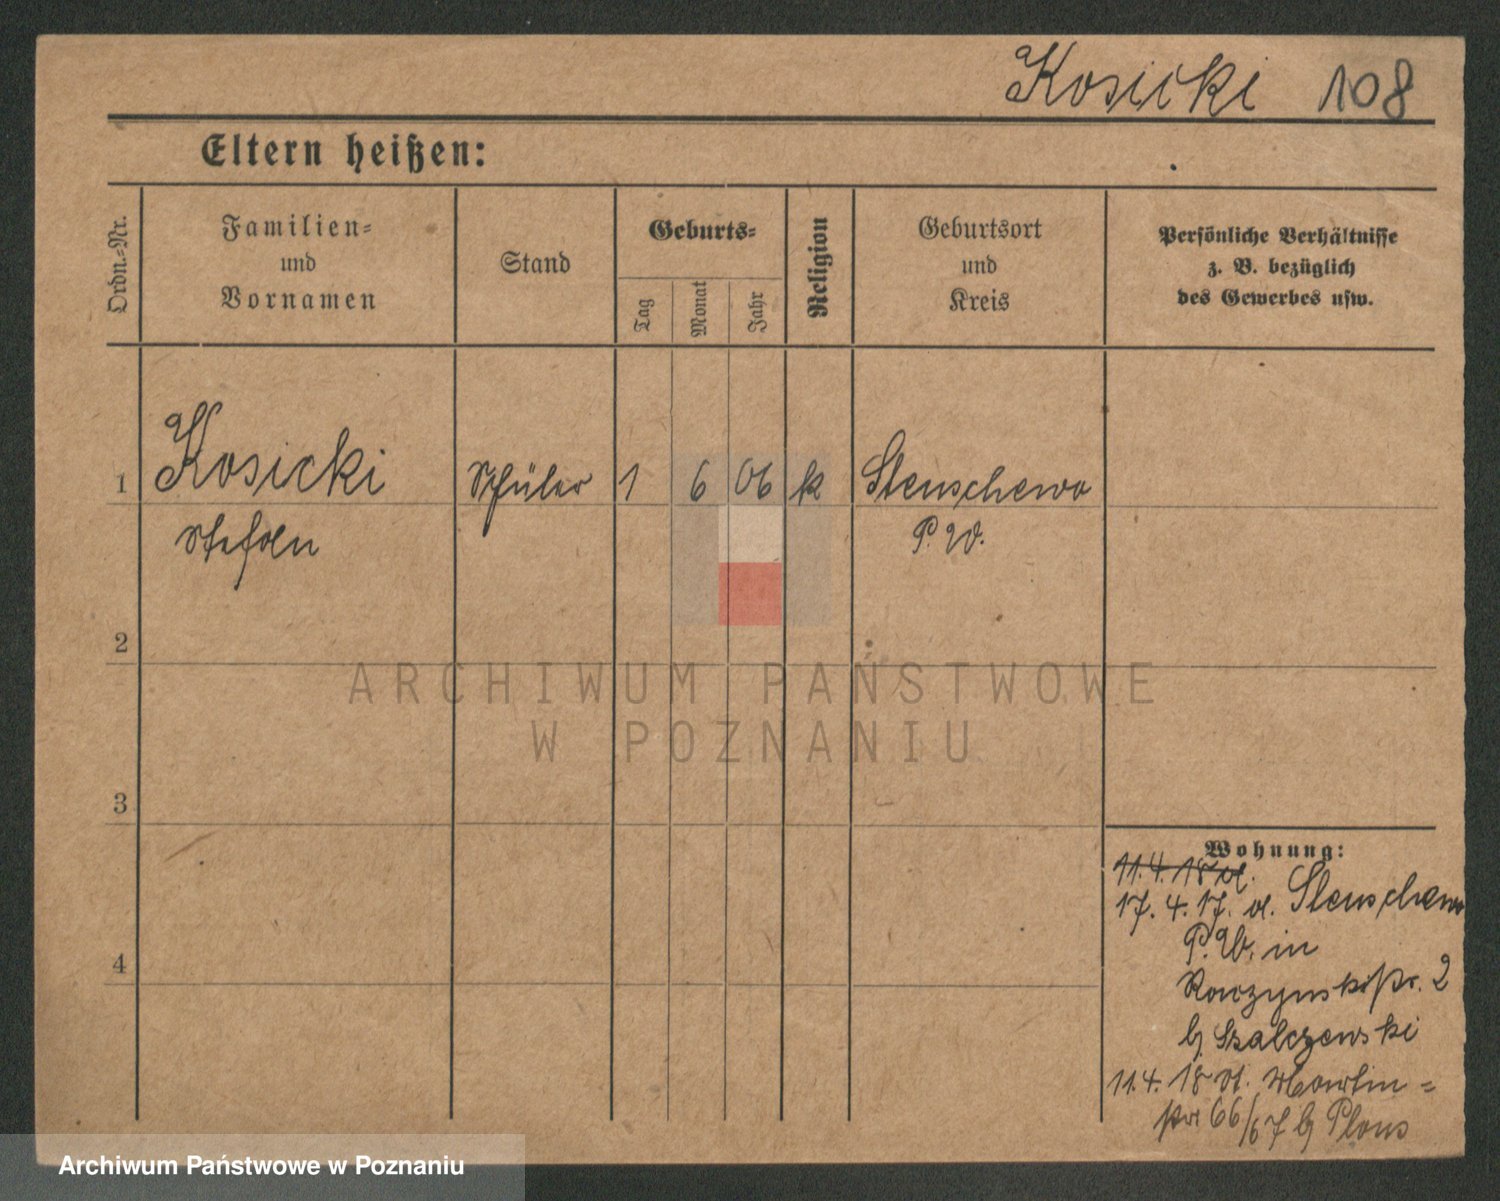 Kosicki 108
Eltern heißen:
Ordn.-Nr.
Familien- und Vornamen
Stand
Geburts-
Tag
Monat
Jahr
Religion
Geburtsort und Kreis
Persönliche Verhältnisse
z. B. bezüglich
des Gewerbes usw.
1 Kosicki Schüler 1 6 06 k Stenschewo
Stefan P. W.
2
3
4
Wohnung:
11.4.18
17.4.17. v. Stenschewo
P. W. in
Raczynskistr. 2
b/ Szalczewski
11.4.18 Martin=
str 66/67 b/
ARCHIWUM PAŃSTWOWE
W POZNANIU
Archiwum Państwowe w Poznaniu